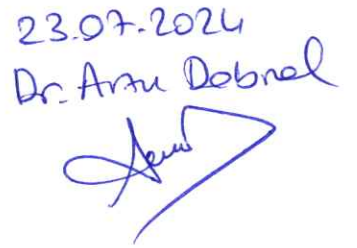 23.07.2024
Dr. Arzu Dobral